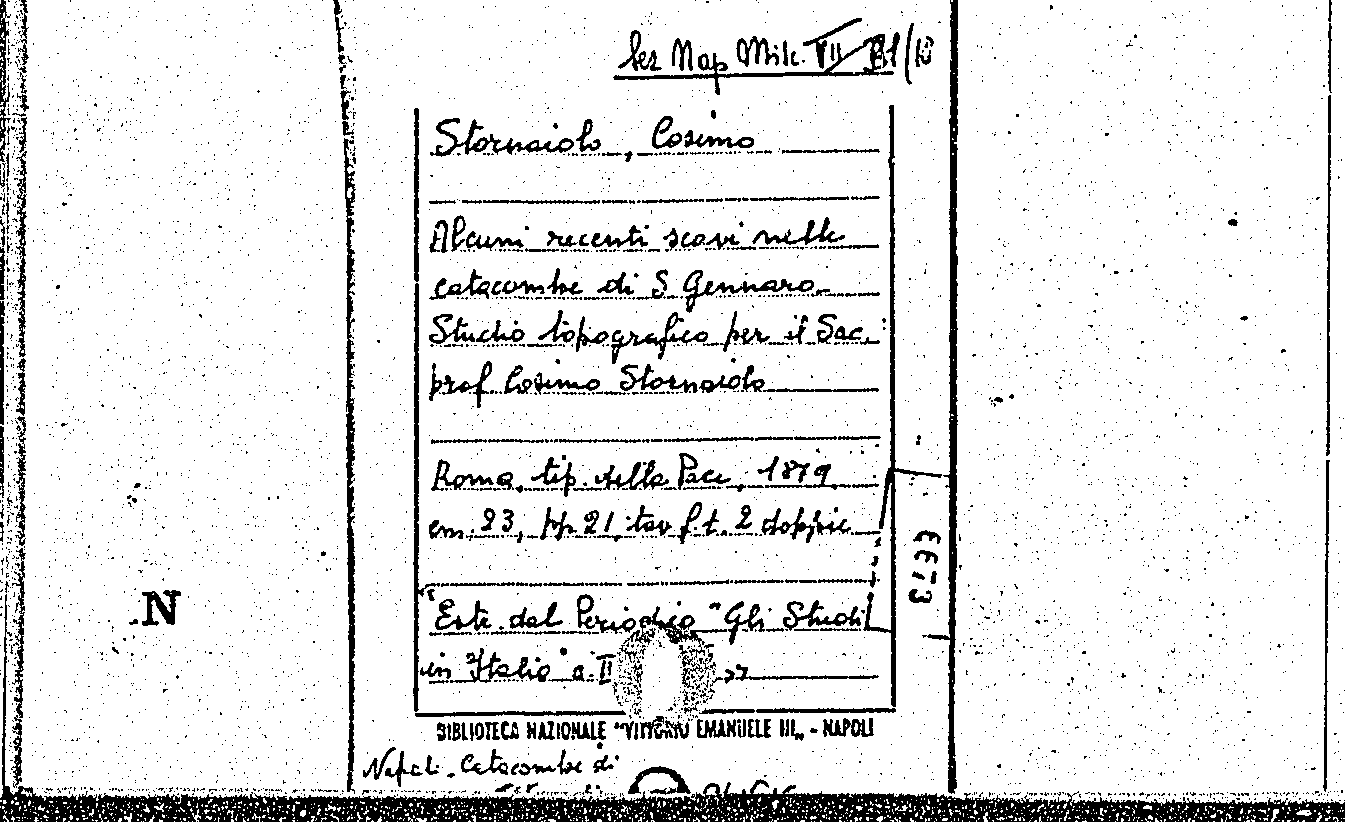 Sez Nap Misc.
Stornaiolo, Cosimo
Alcuni recenti scavi nelle
catacombe di S Gennaro.
Studio topografico per il Sac.
prof Cosimo Stornaiolo
Roma, tip. della Pace, 1879
cm. 23, pp 21, tav f.t. 2 doppie
Estr. dal Periodico "Gli Studi
in Italia" a. II
6673
N
BIBLIOTECA NAZIONALE "VITTORIO EMANUELE III„ - NAPOLI
Napoli - Catacombe di